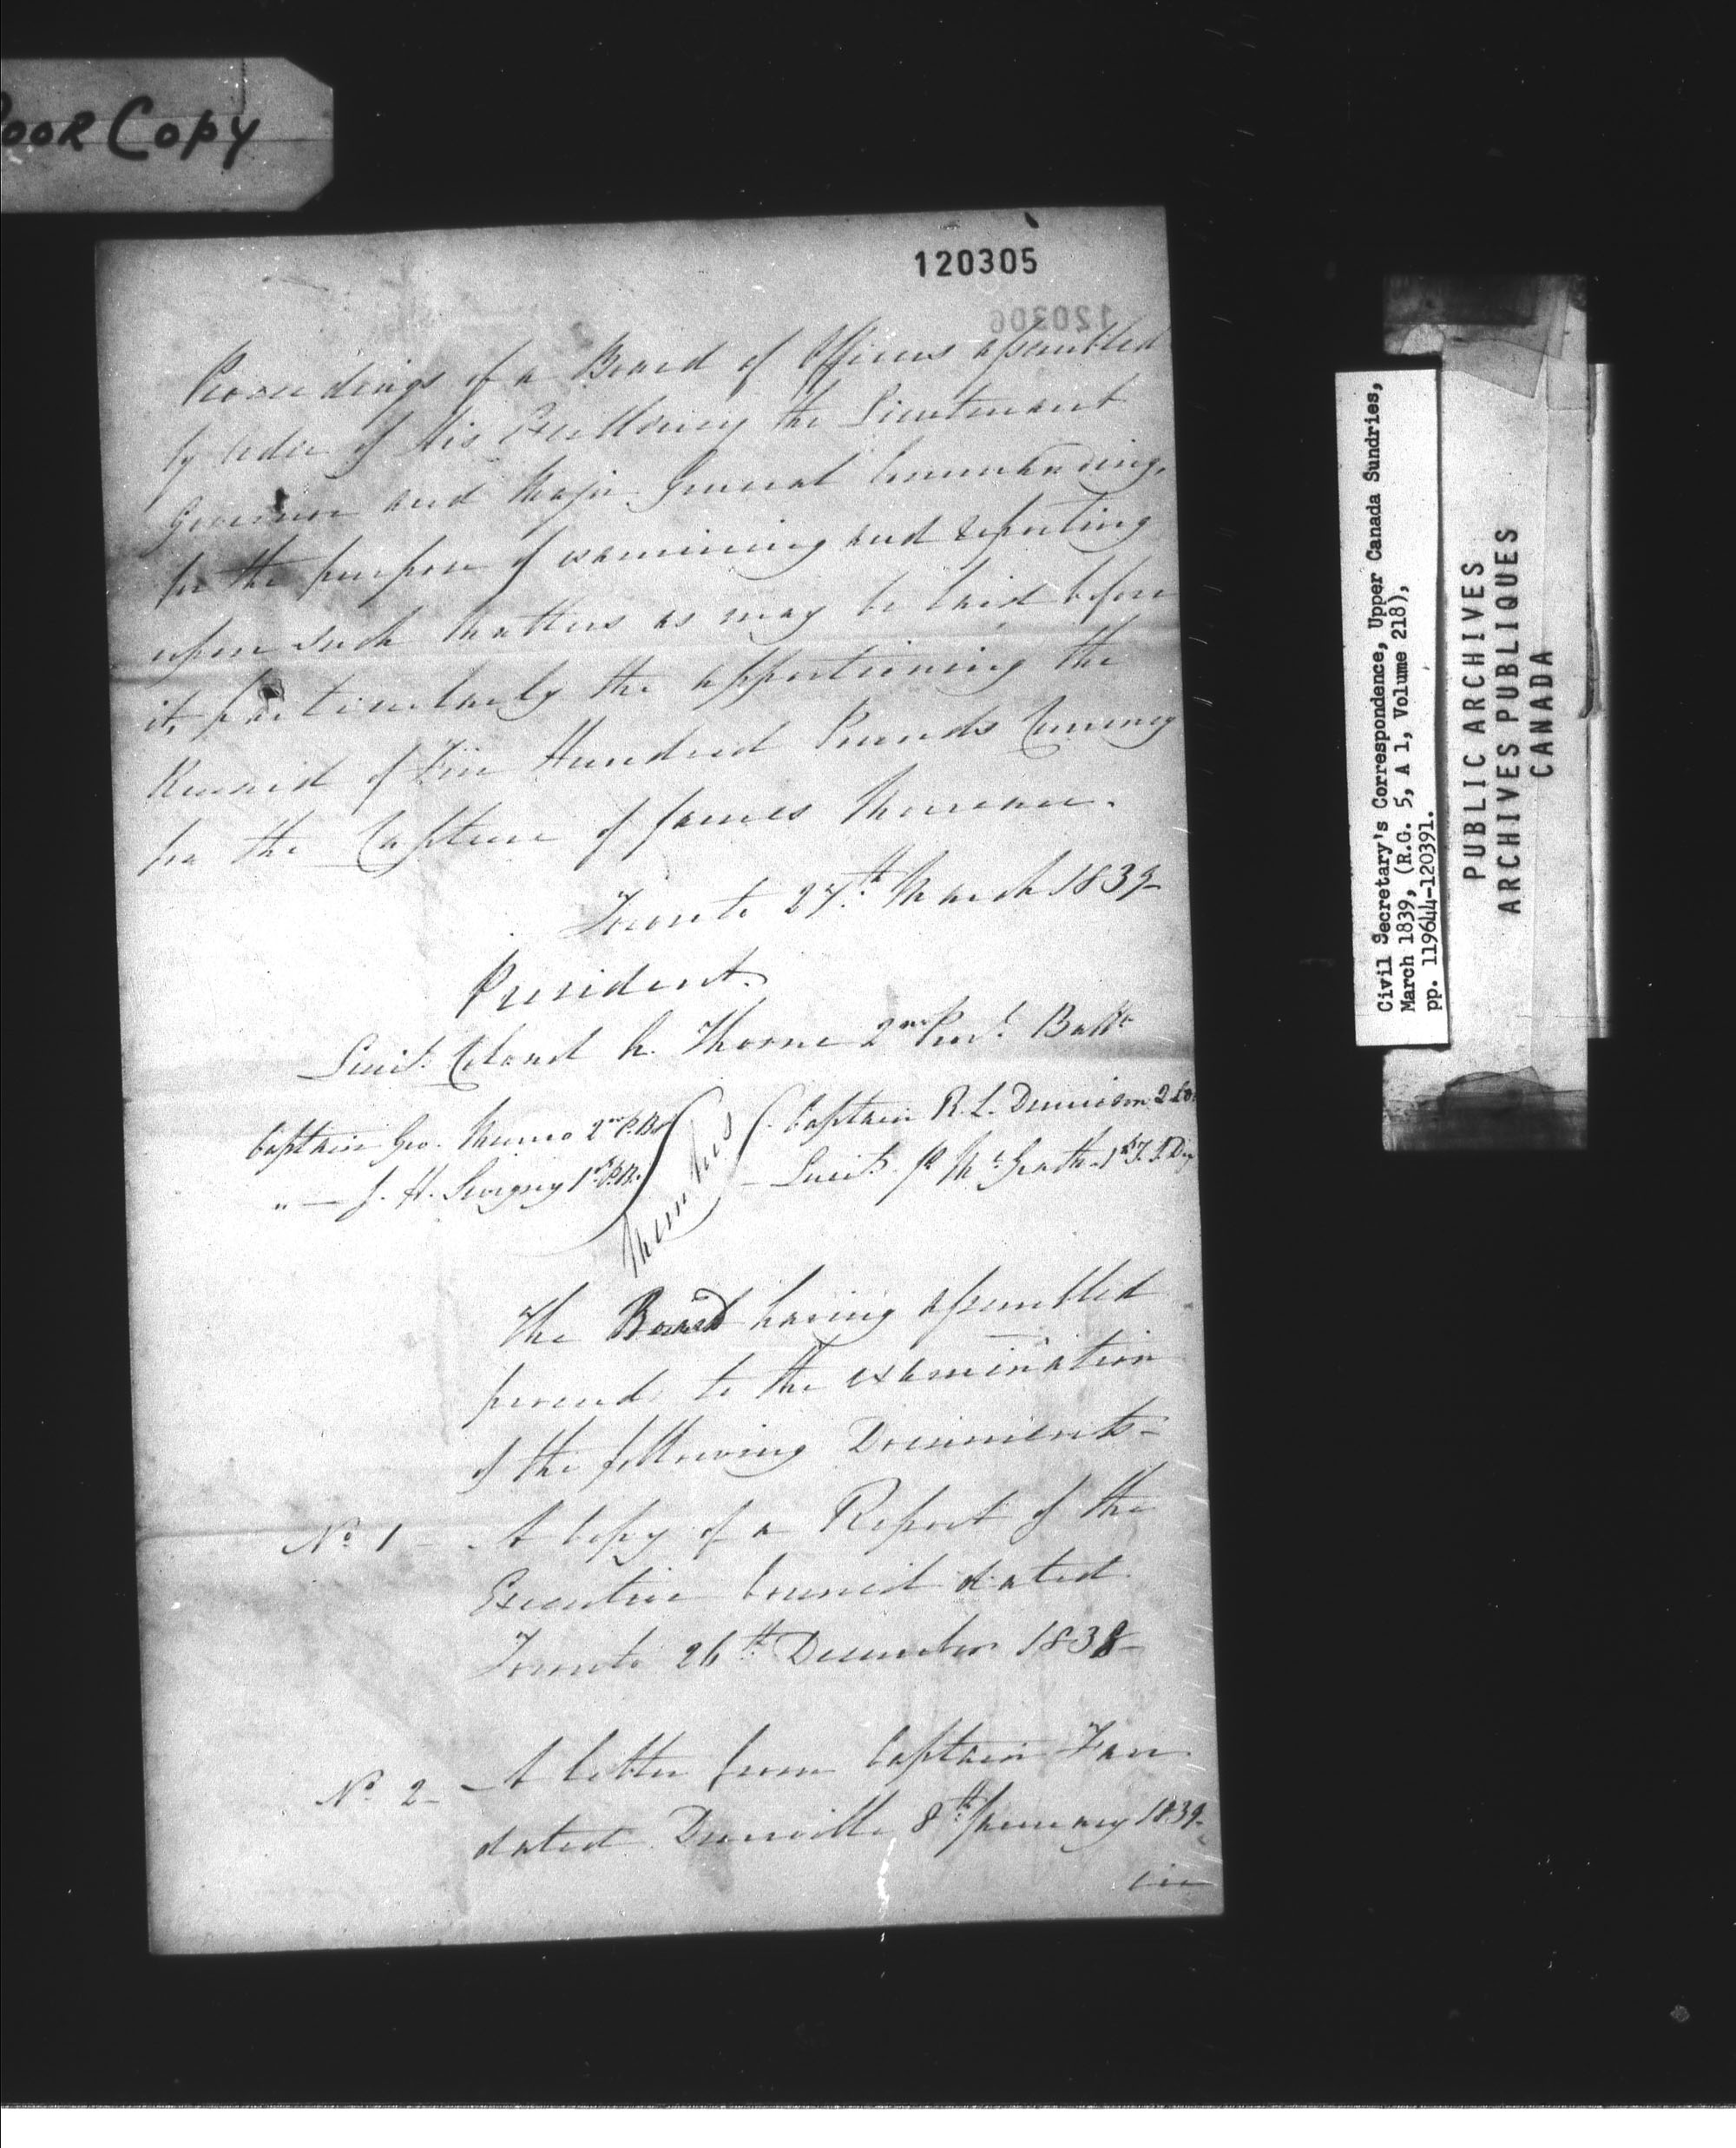 Poor Copy
120305
120306
Proceedings of a Board of Officers assembled
by order of His Excellency the Lieutenant
Governor and Major General Commanding,
for the purpose of examining and reporting
upon such matters as may be laid before
it, particularly the apportioning the
Reward of Five Hundred Pounds Currency
for the Capture of James Morreau.
Toronto 27th March 1839-
President.
Lieut. Colonel Thorne 2nd Batt
Captain Geo. Munro 2nd P.B.
" — J. H. Sevigny 1st P.B.
Members
Captain R. L. Dennison 2
Lieut. Mc Grath 1st
The Board having assembled
proceed to the examination
of the following Documents-
No 1 - A Copy of a Report of the
Executive Council dated
Toronto 26th December 1838-
No 2 - A letter from Captain
dated Dunnville 8th January 1839-
Civil Secretary's Correspondence, Upper Canada Sundries,
March 1839, (R.G. 5, A 1, Volume 218),
pp. 119644-120391.
PUBLIC ARCHIVES
ARCHIVES PUBLIQUES
CANADA